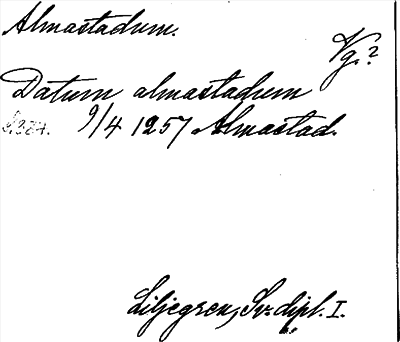 Almastadum.
Vg.?
Datum almastadum
S. 384. 9/4 1257 Almastad.
Liljegren, Sv. dipl. I.